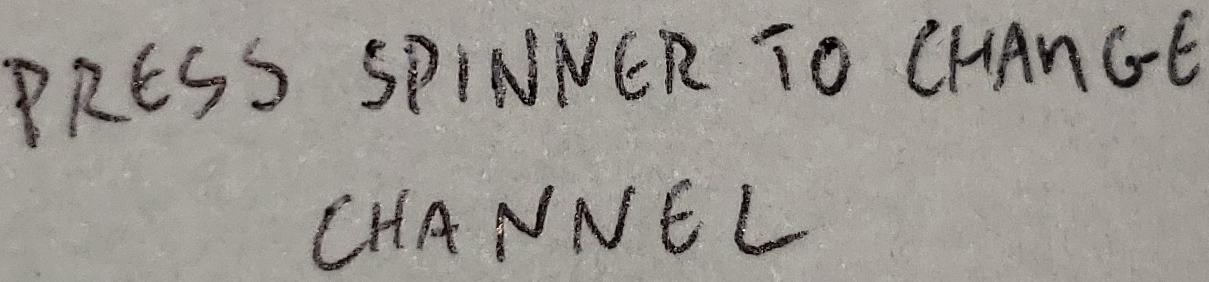 PRESS SPINNER TO CHANGE
CHANNEL